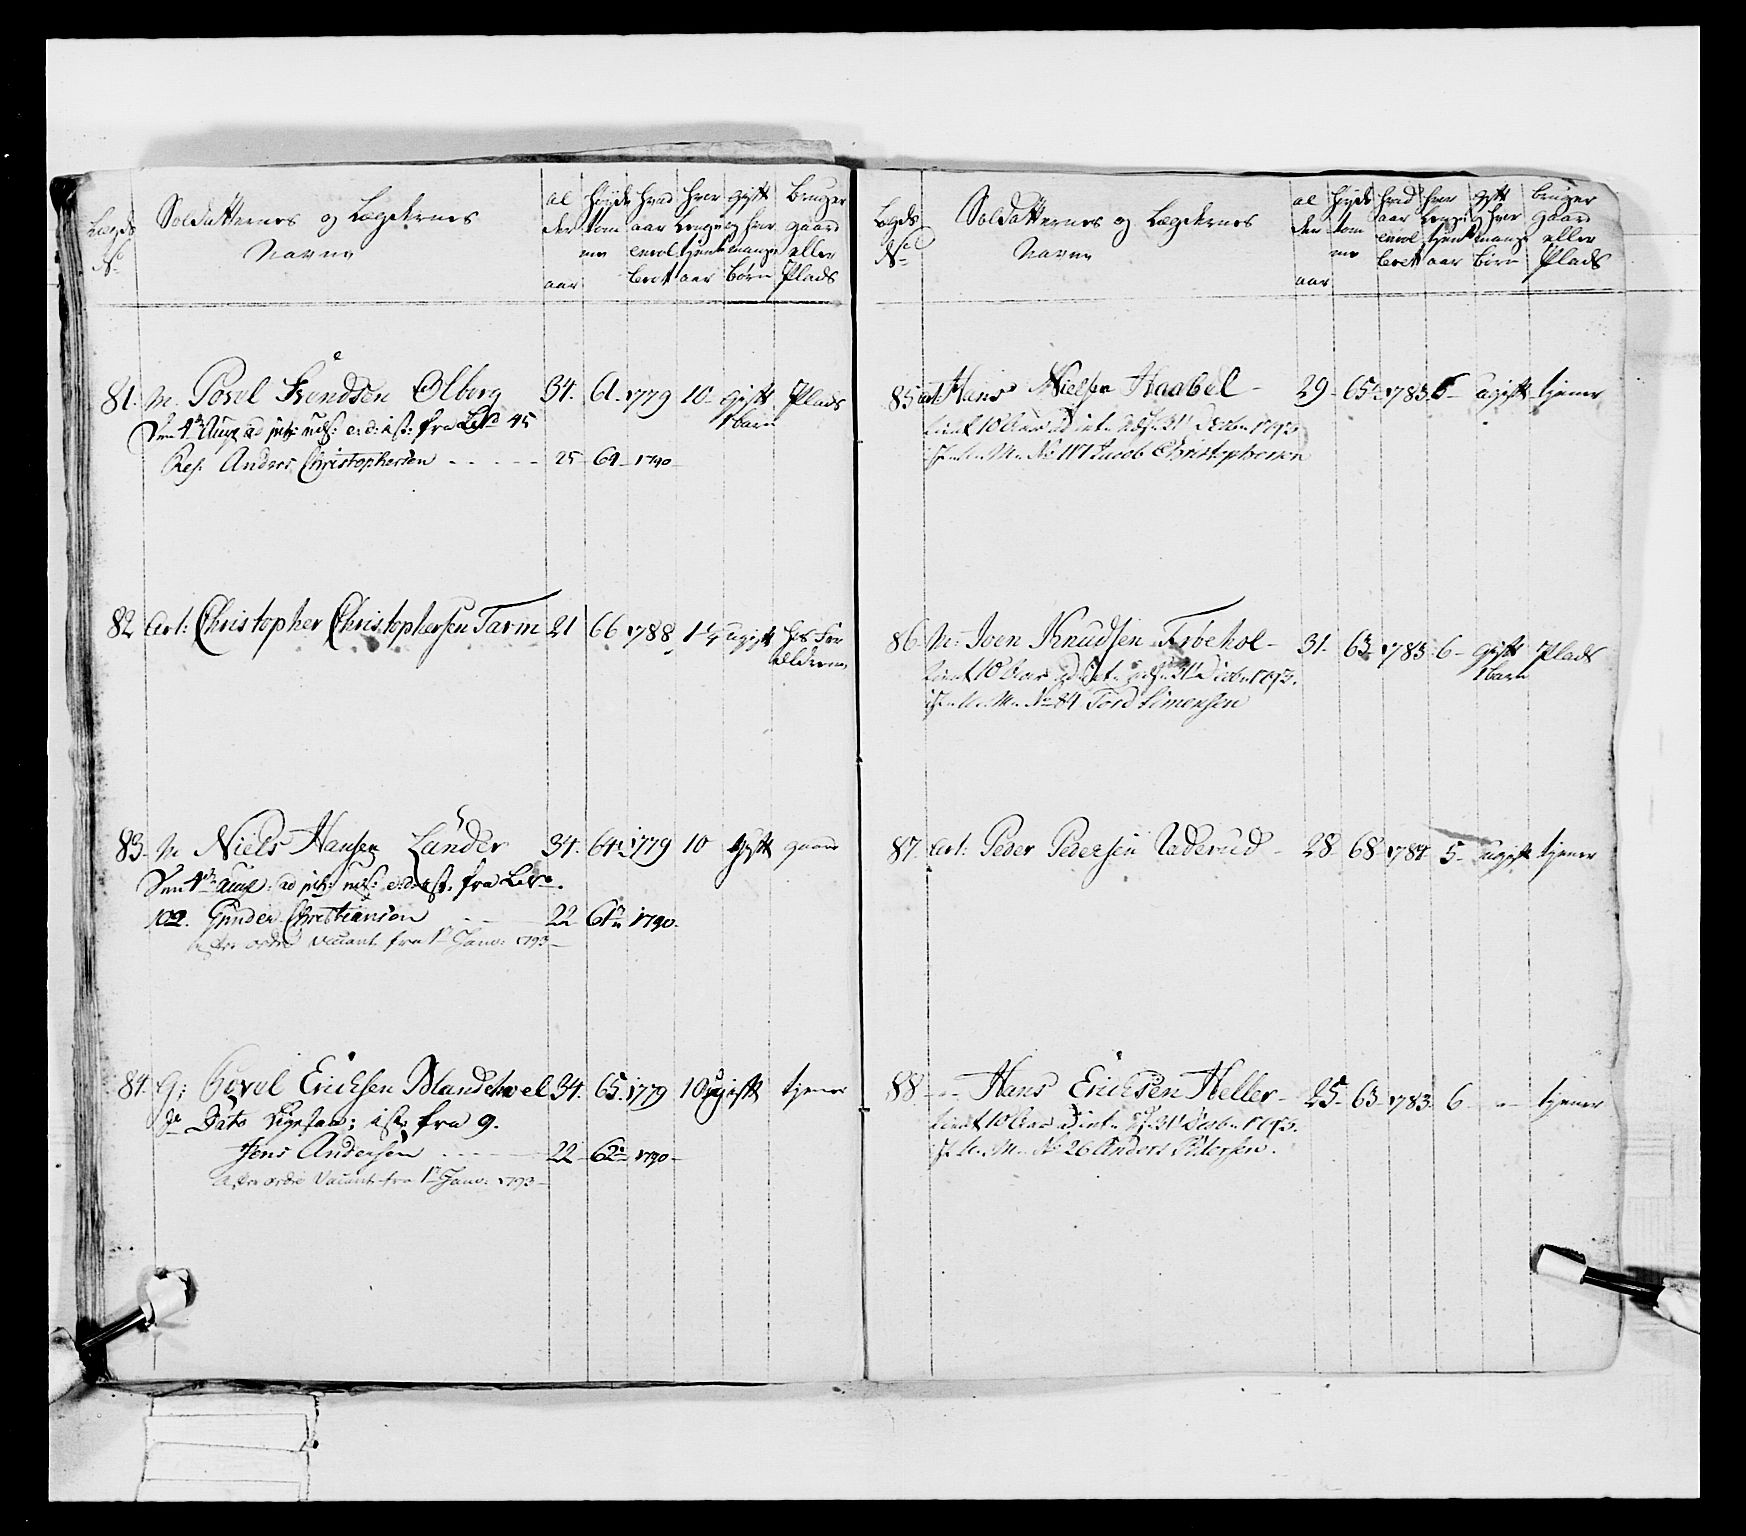 Lægds No
Soldatternes og Lægdernes Navne
al der aar
Høyde tom mer
hvad aar enrol beret
hvor lenge tjent aar
gift og hvor mange børn
bruger gaard eller Plads
81. M. Povel Svendsen Olberg 34. 61. 1779 10 gift 1 barn Plads
Den 4de Aug ad int: uds: e: d: ist: fra 45
Res: Anders Christophersen 25 64 1790
82 Art: Christopher Christophersen Tarm 21 66 1788 1 ugift hos Forældrene
83. M Niels Hansen Lander 34. 64 1779 10 gift gaard
Den 4de Aug: ad int: uds: ist: fra
102. Gunder Christiansen 22 61 1790.
efter ordre Vacant fra 1te Janv: 1793
84. G: Povel Erichsen 34. 65. 1779 10 ugift tjener
Dato ist: fra 9.
Jens Andersen 22 62 1790
efter ordre Vacant fra 1te Janv: 1793
Lægds No
Soldatternes og Lægdernes Navne
al der aar
Høyde tom mer
hvad aar enrol beret
hvor lenge tjent aar
gift og hvor mange børn
bruger gaard eller Plads
85 Art: Hans Nielsen Haabel 29 65 1783 6 ugift tjener
tient 10 Aar ad int: uds: 31te Decbr: 1793
M: No 117 Jacob Christophersen
86 M: Joen Knudsen 31. 63 1783 6 gift 1 barn Plads
tient 10 Aar ad int: uds: 31te Decbr: 1793.
M: No 84 Tord Simensen
87. Art: Peder Pedersen 28 68 1784 5 ugift tjener
88 Hans Erichsen Heller 25 63 1783 6 tjener
tient 10 Aar ad int: uds: 31te Decbr: 1793.
M: No 26 Anders Pedersen.